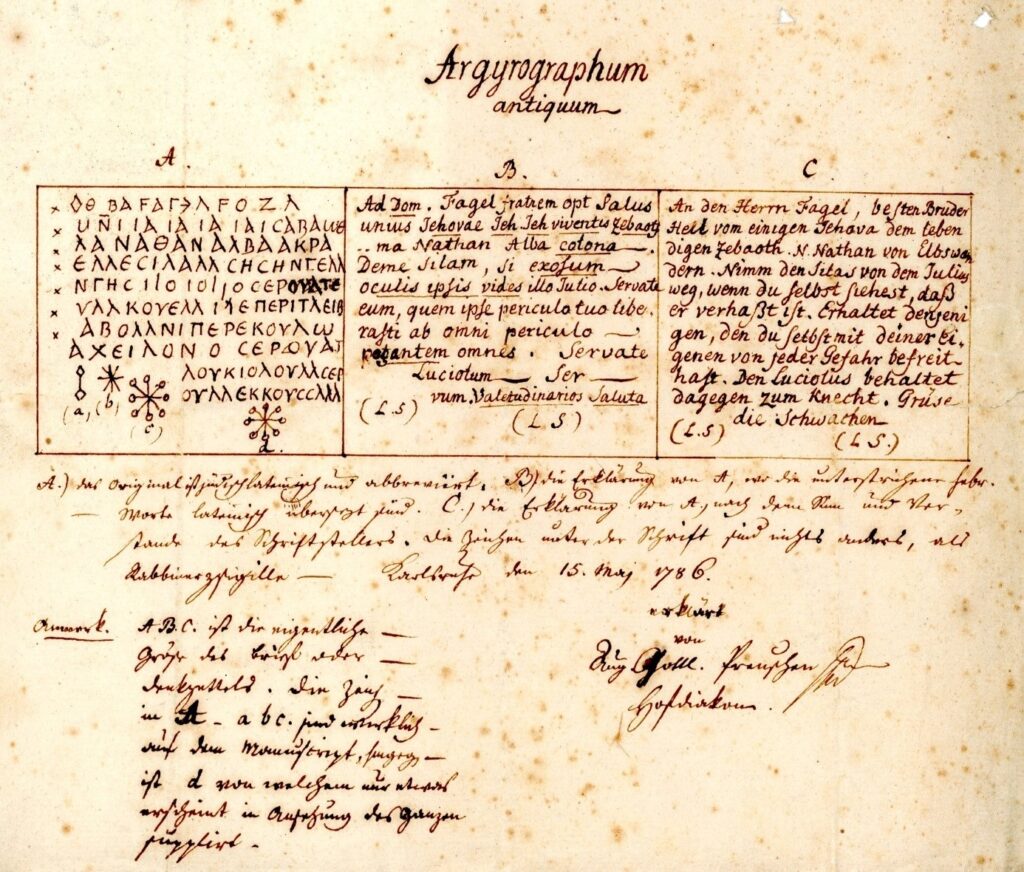 Argyrographum
antiquum
A.
× ΟΘ ΒΑ FΑΓ϶Λ FΟΖΛ
ΛΑΝΑΘΑΝΑΛΒΑΑΚΡΑ
ΥΛΛΚΟΥΕΛΛ ΠΕΡΙΤΛΕΙΒ
× ΑΒΟΛΛΝΙΠΕΡΕΚΟΥΛω
ΑΧΕΙΛΟΝΟ CΕΡΟΥΑΤ
ΛΟΥΚΙΟΛΟΥΛΛCΕΡ
ΟΥΛΛΕΚΚΟΥCCΛΛΛ
(a) (b)
(c)
d.
B.
Ad Dom. Fagel fratrem opt Salus
unius Jehovae Jeh Jeh viventis Zebaoth
..ma Nathan Alba colona
Deme Silam, si exosum
oculis ipsis vides illo Julio. Servate
eum, quem ipse periculo tuo libe-
rasti ab omni periculo
rogantem omnes. Servate
Luciolum Ser
vum. Valetudinarios Saluta
(L.S)
(L S)
C
An den Herrn Fagel, besten Bruder
Heil vom einigen Jehova dem leben
digen Zebaoth. N. Nathan von Elbswan
dern. Nimm den Silas von dem Julius
weg, wenn du selbst siehest, daß
er verhaßt ist. Erhaltet denjeni
gen, den du selbst mit deiner ei-
genen von jeder Gefahr befreit
hast. Den Luciolus behaltet
dagegen zum Knecht. Grüse
die Schwachen
(L.S) (L S.)
A.) das Original ist jüdischlateinisch und abbreviirt. B.) die Erklärung von A, wo die unterstrichene hebr.
— Worte lateinisch übersezt sind. C.) die Erklärung von A, nach dem Sinn und Ver-
stande des Schriftstellers. Die Zeichen unter der Schrift sind nichts anders, als
Rabbinerzsigille — Karlsruhe den 15. Maj 1786.
erklärt
von
Aug. Gottl. Preuschen
Hofdiakon.
Anmerk. A B.C. ist die eigentliche —
Gröse des Briefs oder —
denkzettels. Die Zeich —
in A – a b c. sind wirklich –
auf dem Manuscript, hingeg –
ist d von welchem nur etwas
erscheint in Ansehung des Ganzen
supplirt.